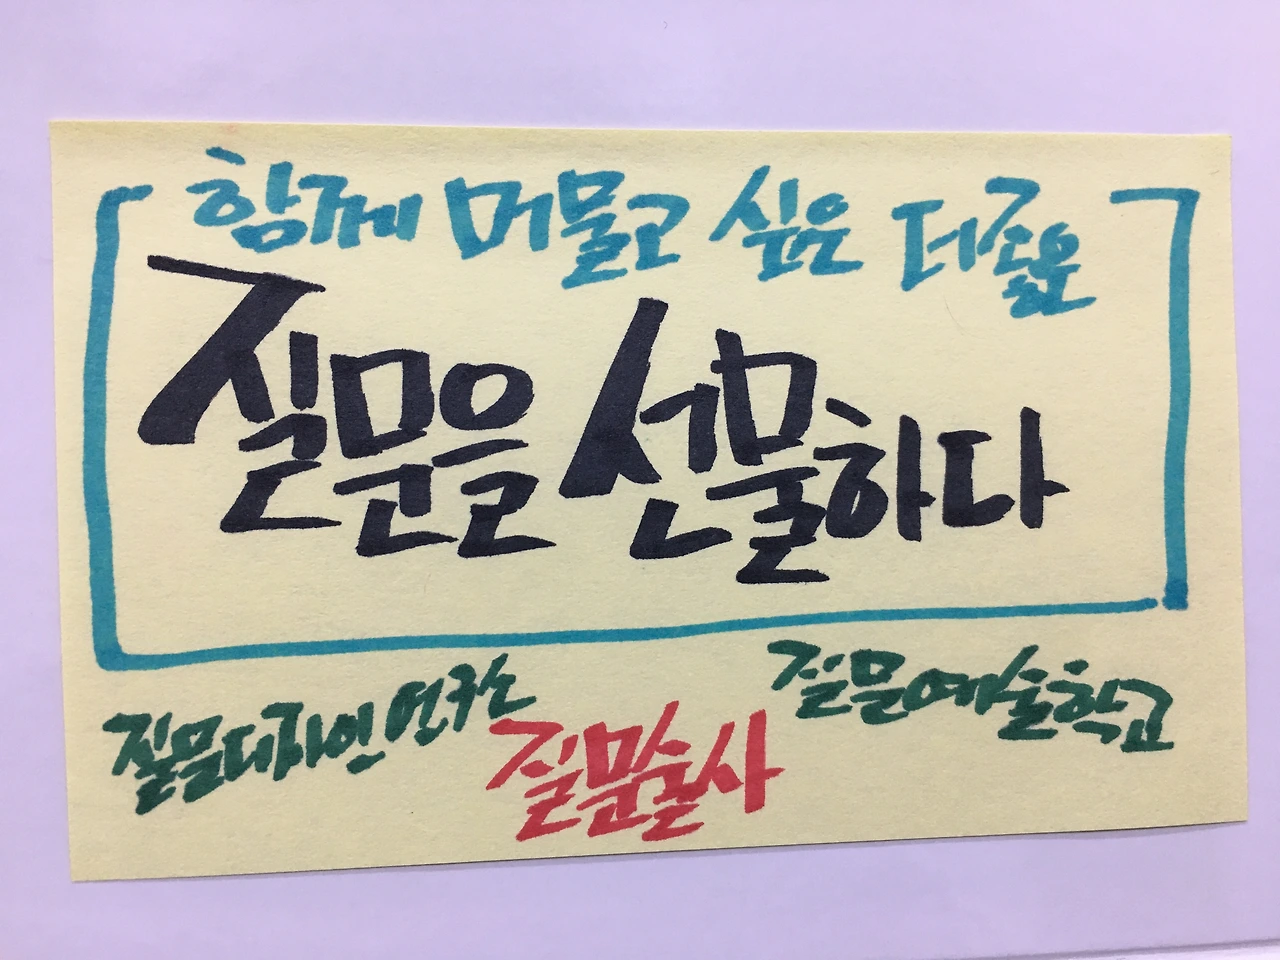 함께 머물고 싶은 더 좋은
질문을 선물하다
질문디자인 연구소
질문예술학교
질문술사